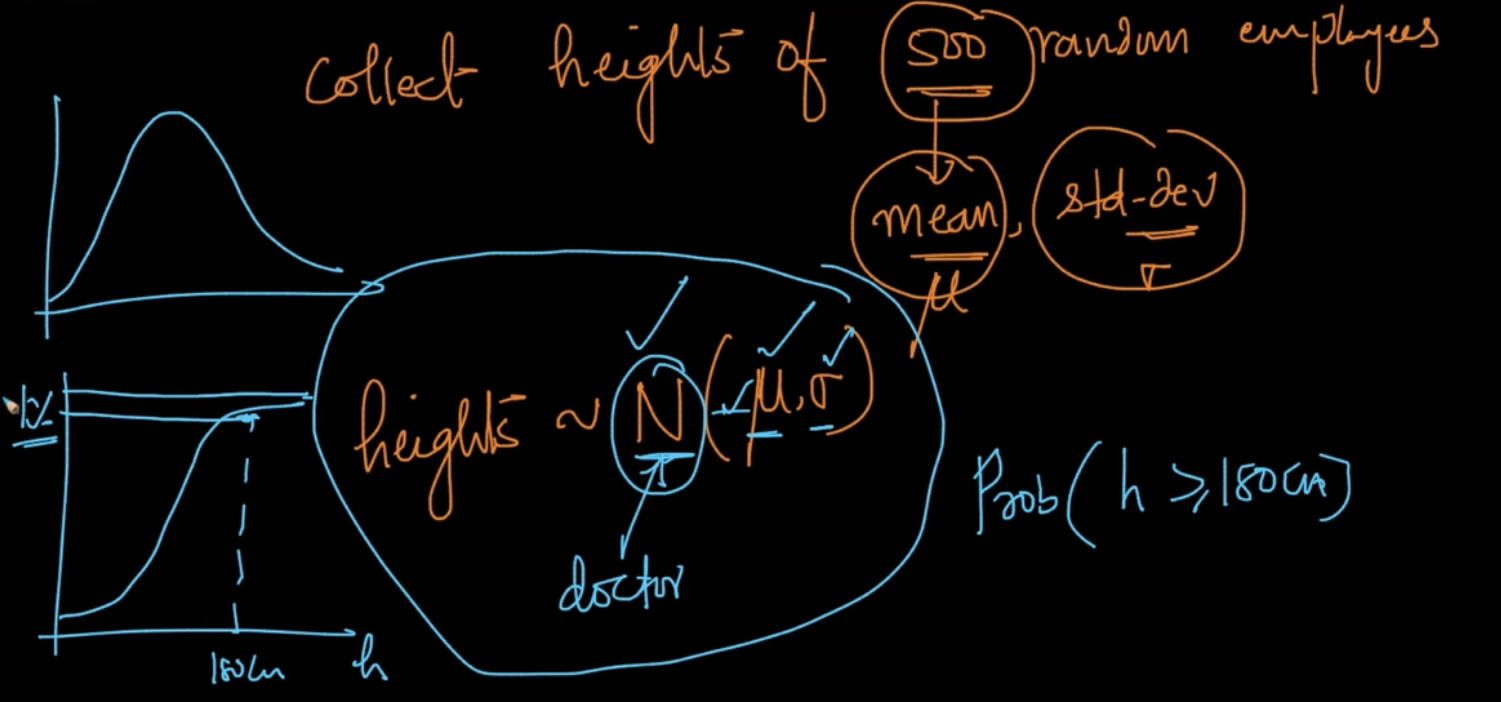 collect heights of 500 random employees
mean, std-dev
μ σ
heights ~ N(μ,σ)
doctor
Prob(h ≥ 180cm)
1%
180cm h